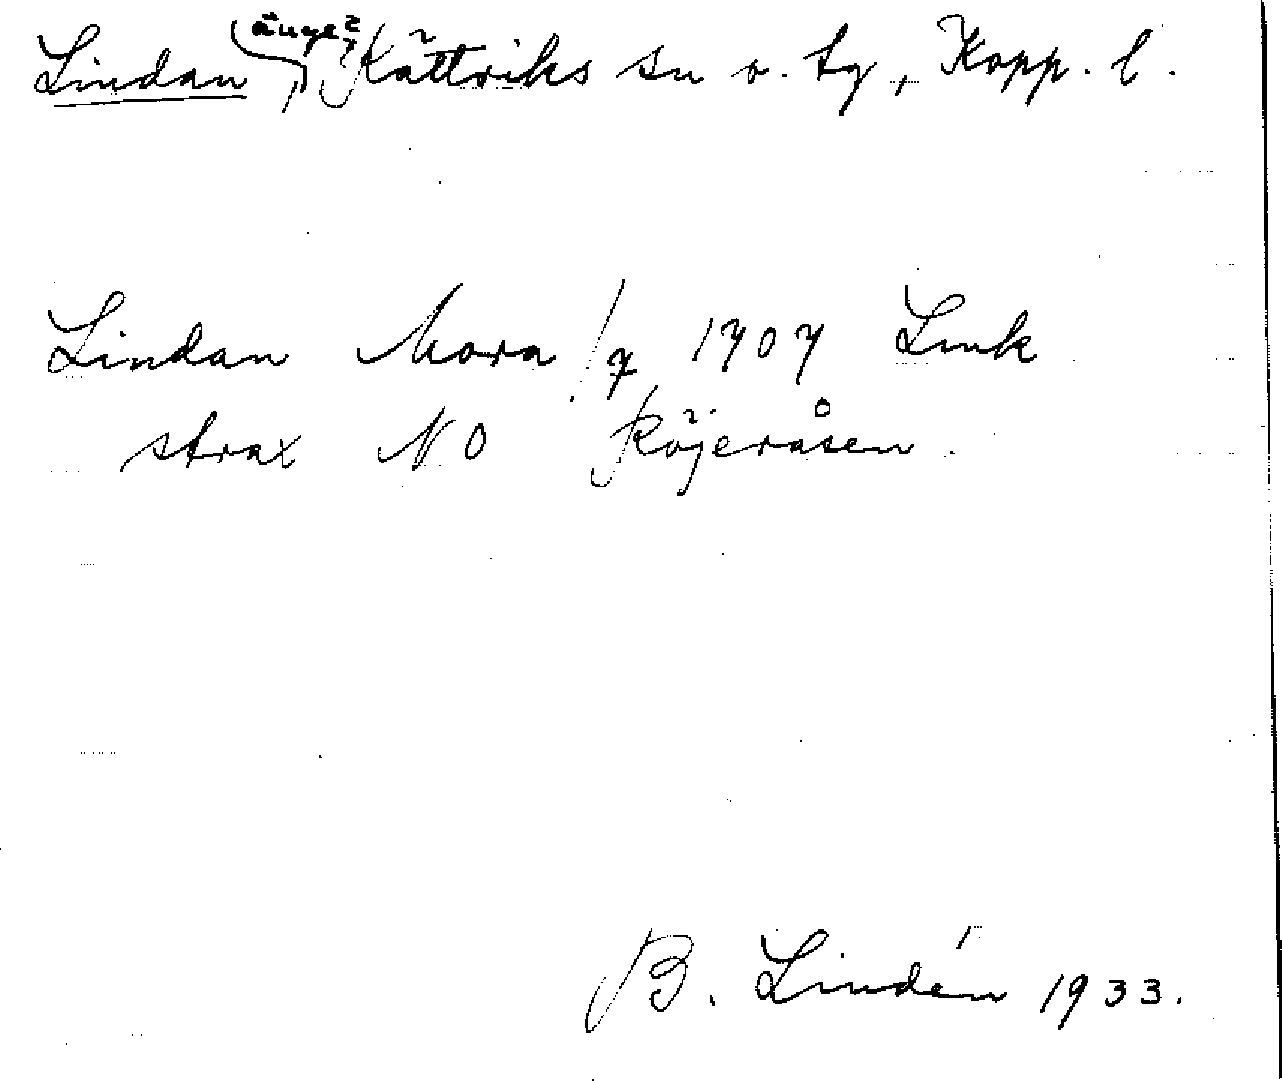 Lindan (änge?), Rättviks sn o. tg, Kopp. l.
Lindan Mora /q 1707 Link
strax NO Röjeråsen.
B. Lindén 1933.